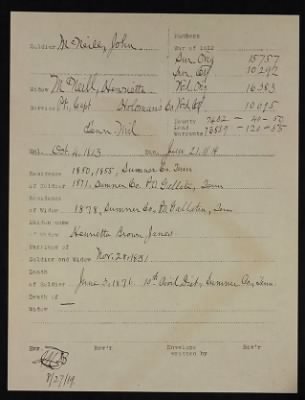 Numbers
Soldier McNeill, John
War of 1812
Sur. Org 15757
Sur. Ctf 10292
Widow McNeill, Henrietta
Wid. Org 16383
Service Pt. Capt Holoman's Co Wid. Ctf 10015
Tenn Mil
Land Warrants 7652 - 40 - 50
- 120 - 55
Enl. Oct. 4, 1813 Dis. June 21, 1814
Residence 1850, 1855, Sumner Co. Tenn
of Soldier 1871, Sumner Co. P.O. Gallatin, Tenn
Residence
of Widow 1878, Sumner Co. P.O. Gallatin, Tenn
Maiden name
of Widow Henrietta Brown Jones
Marriage of
Soldier and Widow Nov. 28, 1831
Death
of Soldier June 3, 1876. 10th Civil Dist., Sumner Co., Tenn
Death of
Widow —
Rec'r Envelope Rec'r
written by
8/27/19